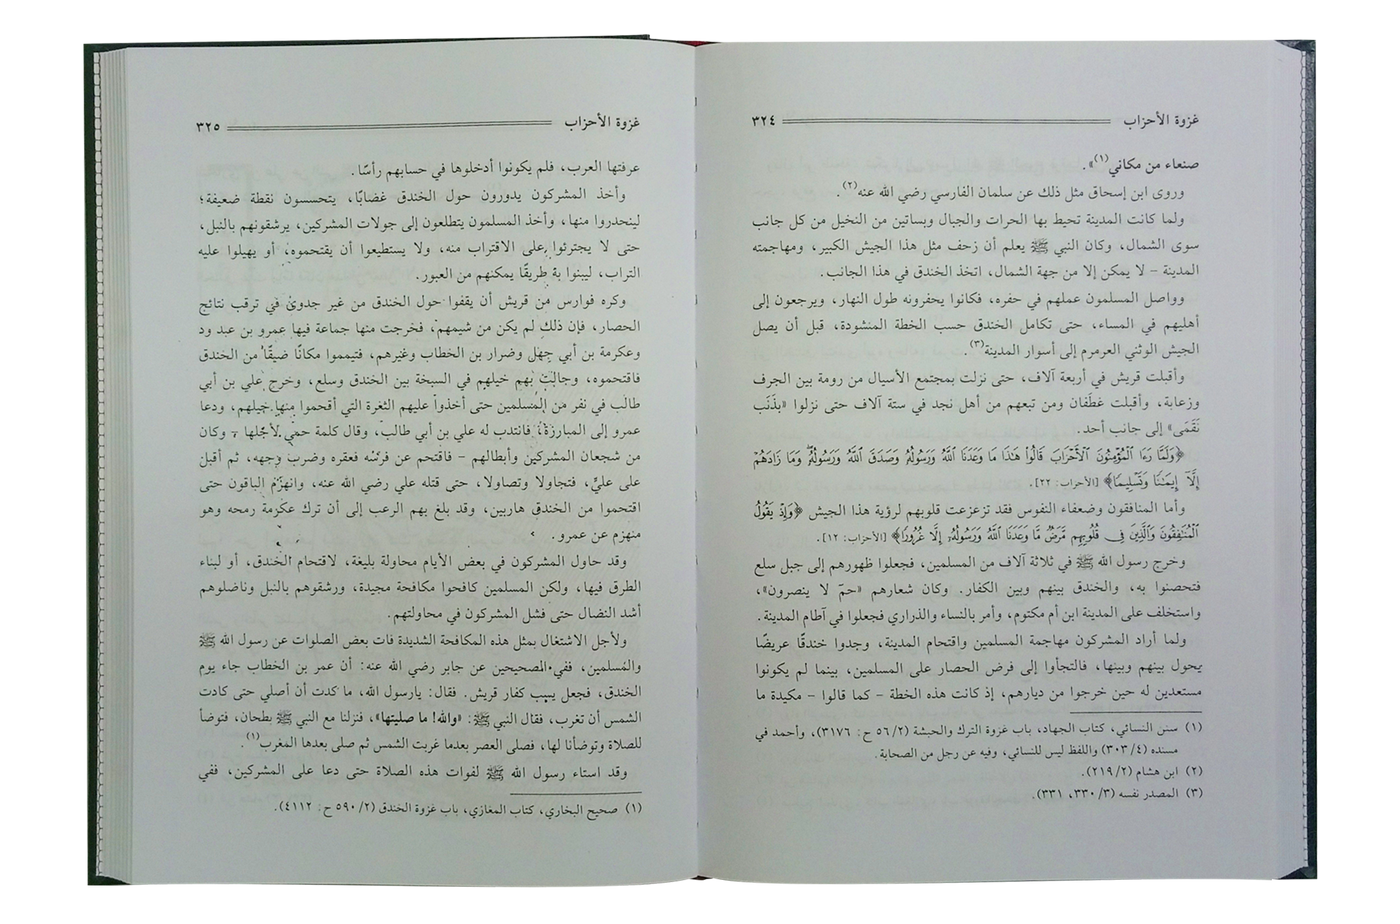 غزوة الأحزاب ٣٢٤
صنعاء من مكاني(١)».
وروى ابن إسحاق مثل ذلك عن سلمان الفارسي رضي الله عنه(٢).
ولما كانت المدينة تحيط بها الحرات والجبال وبساتين من النخيل من كل جانب
سوى الشمال، وكان النبي ﷺ يعلم أن زحف مثل هذا الجيش الكبير، ومهاجمته
المدينة - لا يمكن إلا من جهة الشمال، اتخذ الخندق في هذا الجانب.
وواصل المسلمون عملهم في حفره، فكانوا يحفرونه طول النهار، ويرجعون إلى
أهليهم في المساء، حتى تكامل الخندق حسب الخطة المنشودة، قبل أن يصل
الجيش الوثني العرمرم إلى أسوار المدينة(٣).
وأقبلت قريش في أربعة آلاف، حتى نزلت بمجتمع الأسيال من رومة بين الجرف
وزعابة، وأقبلت غطَفان ومن تبعهم من أهل نجد في ستة آلاف حتى نزلوا «بذَنَب
نَقَمَى» إلى جانب أحد.
﴿وَلَمَّا رَءَا ٱلۡمُؤۡمِنُونَ ٱلۡأَحۡزَابَ قَالُواْ هَٰذَا مَا وَعَدَنَا ٱللَّهُ وَرَسُولُهُۥ وَصَدَقَ ٱللَّهُ وَرَسُولُهُۥۚ وَمَا زَادَهُمۡ
إِلَّآ إِيمَٰنٗا وَتَسۡلِيمٗا﴾ [الأحزاب: ٢٢].
وأما المنافقون وضعفاء النفوس فقد تزعزعت قلوبهم لرؤية هذا الجيش ﴿وَإِذۡ يَقُولُ
ٱلۡمُنَٰفِقُونَ وَٱلَّذِينَ فِي قُلُوبِهِم مَّرَضٞ مَّا وَعَدَنَا ٱللَّهُ وَرَسُولُهُۥٓ إِلَّا غُرُورٗا﴾ [الأحزاب: ١٢].
وخرج رسول الله ﷺ في ثلاثة آلاف من المسلمين، فجعلوا ظهورهم إلى جبل سلع
فتحصنوا به، والخندق بينهم وبين الكفار. وكان شعارهم «حمٓ لا ينصرون»،
واستخلف على المدينة ابن أم مكتوم، وأمر بالنساء والذراري فجعلوا في آطام المدينة.
ولما أراد المشركون مهاجمة المسلمين واقتحام المدينة، وجدوا خندقًا عريضًا
يحول بينهم وبينها، فالتجأوا إلى فرض الحصار على المسلمين، بينما لم يكونوا
مستعدين له حين خرجوا من ديارهم، إذ كانت هذه الخطة - كما قالوا - مكيدة ما
(١) سنن النسائي، كتاب الجهاد، باب غزوة الترك والحبشة (٥٦/٢ ح: ٣١٧٦)، وأحمد في
مسنده (٣٠٣/٤) واللفظ ليس للنسائي، وفيه عن رجل من الصحابة.
(٢) ابن هشام (٢١٩/٢).
(٣) المصدر نفسه (٣٣٠/٣، ٣٣١).
غزوة الأحزاب ٣٢٥
عرفتها العرب، فلم يكونوا أدخلوها في حسابهم رأسًا.
وأخذ المشركون يدورون حول الخندق غضابًا، يتحسسون نقطة ضعيفة؛
لينحدروا منها، وأخذ المسلمون يتطلعون إلى جولات المشركين، يرشقونهم بالنبل،
حتى لا يجترئوا على الاقتراب منه، ولا يستطيعوا أن يقتحموه، أو يهيلوا عليه
التراب، ليبنوا به طريقًا يمكنهم من العبور.
وكره فوارس من قريش أن يقفوا حول الخندق من غير جدوىٰ في ترقب نتائج
الحصار، فإن ذلك لم يكن من شيمهم، فخرجت منها جماعة فيها عمرو بن عبد ود
وعكرمة بن أبي جهل وضرار بن الخطاب وغيرهم، فتيمموا مكانًا ضيقًا من الخندق
فاقتحموه، وجالت بهم خيلهم في السبخة بين الخندق وسلع، وخرج علي بن أبي
طالب في نفر من المُسلمين حتى أخذوا عليهم الثغرة التي أقحموا منها خيلهم، ودعا
عمرو إلى المبارزة، فانتدب له علي بن أبي طالب، وقال كلمة حمي لأجلها - وكان
من شجعان المشركين وأبطالهم - فاقتحم عن فرسه فعقره وضرب وجهه، ثم أقبل
على عليٍّ، فتجاولا وتصاولا، حتى قتله علي رضي الله عنه، وانهزم الباقون حتى
اقتحموا من الخندق هاربين، وقد بلغ بهم الرعب إلى أن ترك عكرمة رمحه وهو
منهزم عن عمرو.
وقد حاول المشركون في بعض الأيام محاولة بليغة، لاقتحام الخندق، أو لبناء
الطرق فيها، ولكن المسلمين كافحوا مكافحة مجيدة، ورشقوهم بالنبل وناضلوهم
أشد النضال حتى فشل المشركون في محاولتهم.
ولأجل الاشتغال بمثل هذه المكافحة الشديدة فات بعض الصلوات عن رسول الله ﷺ
والمُسلمين، ففي الصحيحين عن جابر رضي الله عنه: أن عمر بن الخطاب جاء يوم
الخندق، فجعل يسب كفار قريش. فقال: يارسول الله، ما كدت أن أصلي حتى كادت
الشمس أن تغرب، فقال النبي ﷺ: «والله! ما صليتها»، فنزلنا مع النبي ﷺ بطحان، فتوضأ
للصلاة وتوضأنا لها، فصلى العصر بعدما غربت الشمس ثم صلى بعدها المغرب(١).
وقد استاء رسول الله ﷺ لفوات هذه الصلاة حتى دعا على المشركين، ففي
(١) صحيح البخاري، كتاب المغازي، باب غزوة الخندق (٥٩٠/٢ ح: ٤١١٢).